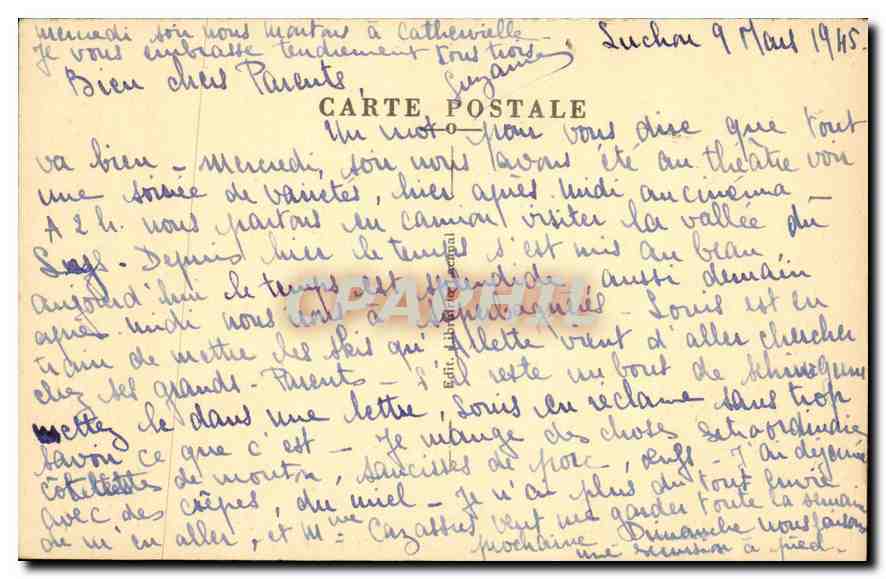 mercredi soir nous montons à Cathervielle.
Je vous embrasse tendrement tous trois.
Suzanne
Luchon 9 Mars 1945.
Bien chers Parents,
CARTE POSTALE
Un mot pour vous dire que tout
va bien - Mercredi, soir nous avons été au théâtre voir
une soirée de variétés, hier après-midi au cinéma -
A 2 h. nous partons en camion visiter la vallée du
Lys. Depuis hier le temps s'est mis au beau
aujourd'hui le temps est splendide aussi demain
après midi nous à - Louis est en
train de mettre les skis qu'Arlette vient d'aller chercher
chez ses grands-Parents - S'il reste un bout de
mettez le dans une lettre, Louis en réclame sans trop
savoir ce que c'est - Je mange des choses extraordinaires
côtelettes de mouton, saucisses de porc, œufs - J'ai déjeuné
avec des crêpes, du miel - Je n'ai plus du tout envie
de m'en aller, et Mme Cazassus veut me garder toute la semaine
prochaine Dimanche nous faisons
une excursion à pied -
Edit. Librairie
CPAPHIL